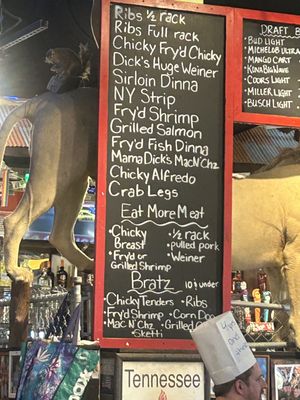 Ribs ½ rack
Ribs Full rack
Chicky Fry'd Chicky
Dick's Huge Weiner
Sirloin Dinna
NY Strip
Fry'd Shrimp
Grilled Salmon
Fry'd Fish Dinna
Mama Dick's Mac N' Chz
Chicky Alfredo
Crab Legs
Eat More Meat
• Chicky Breast
• Fry'd or Grilled Shrimp
• ½ rack
• pulled pork
• Weiner
Bratz 10 & under
• Chicky Tenders • Ribs
• Fry'd Shrimp • Corn Dog
• Mac N' Chz • Grilled
• Sketti
DRAFT
• BUD LIGHT
• MICHELOB ULTRA
• MANGO CART
• KONA BIG WAVE
• COORS LIGHT
• MILLER LIGHT
• BUSCH LIGHT
Tennessee